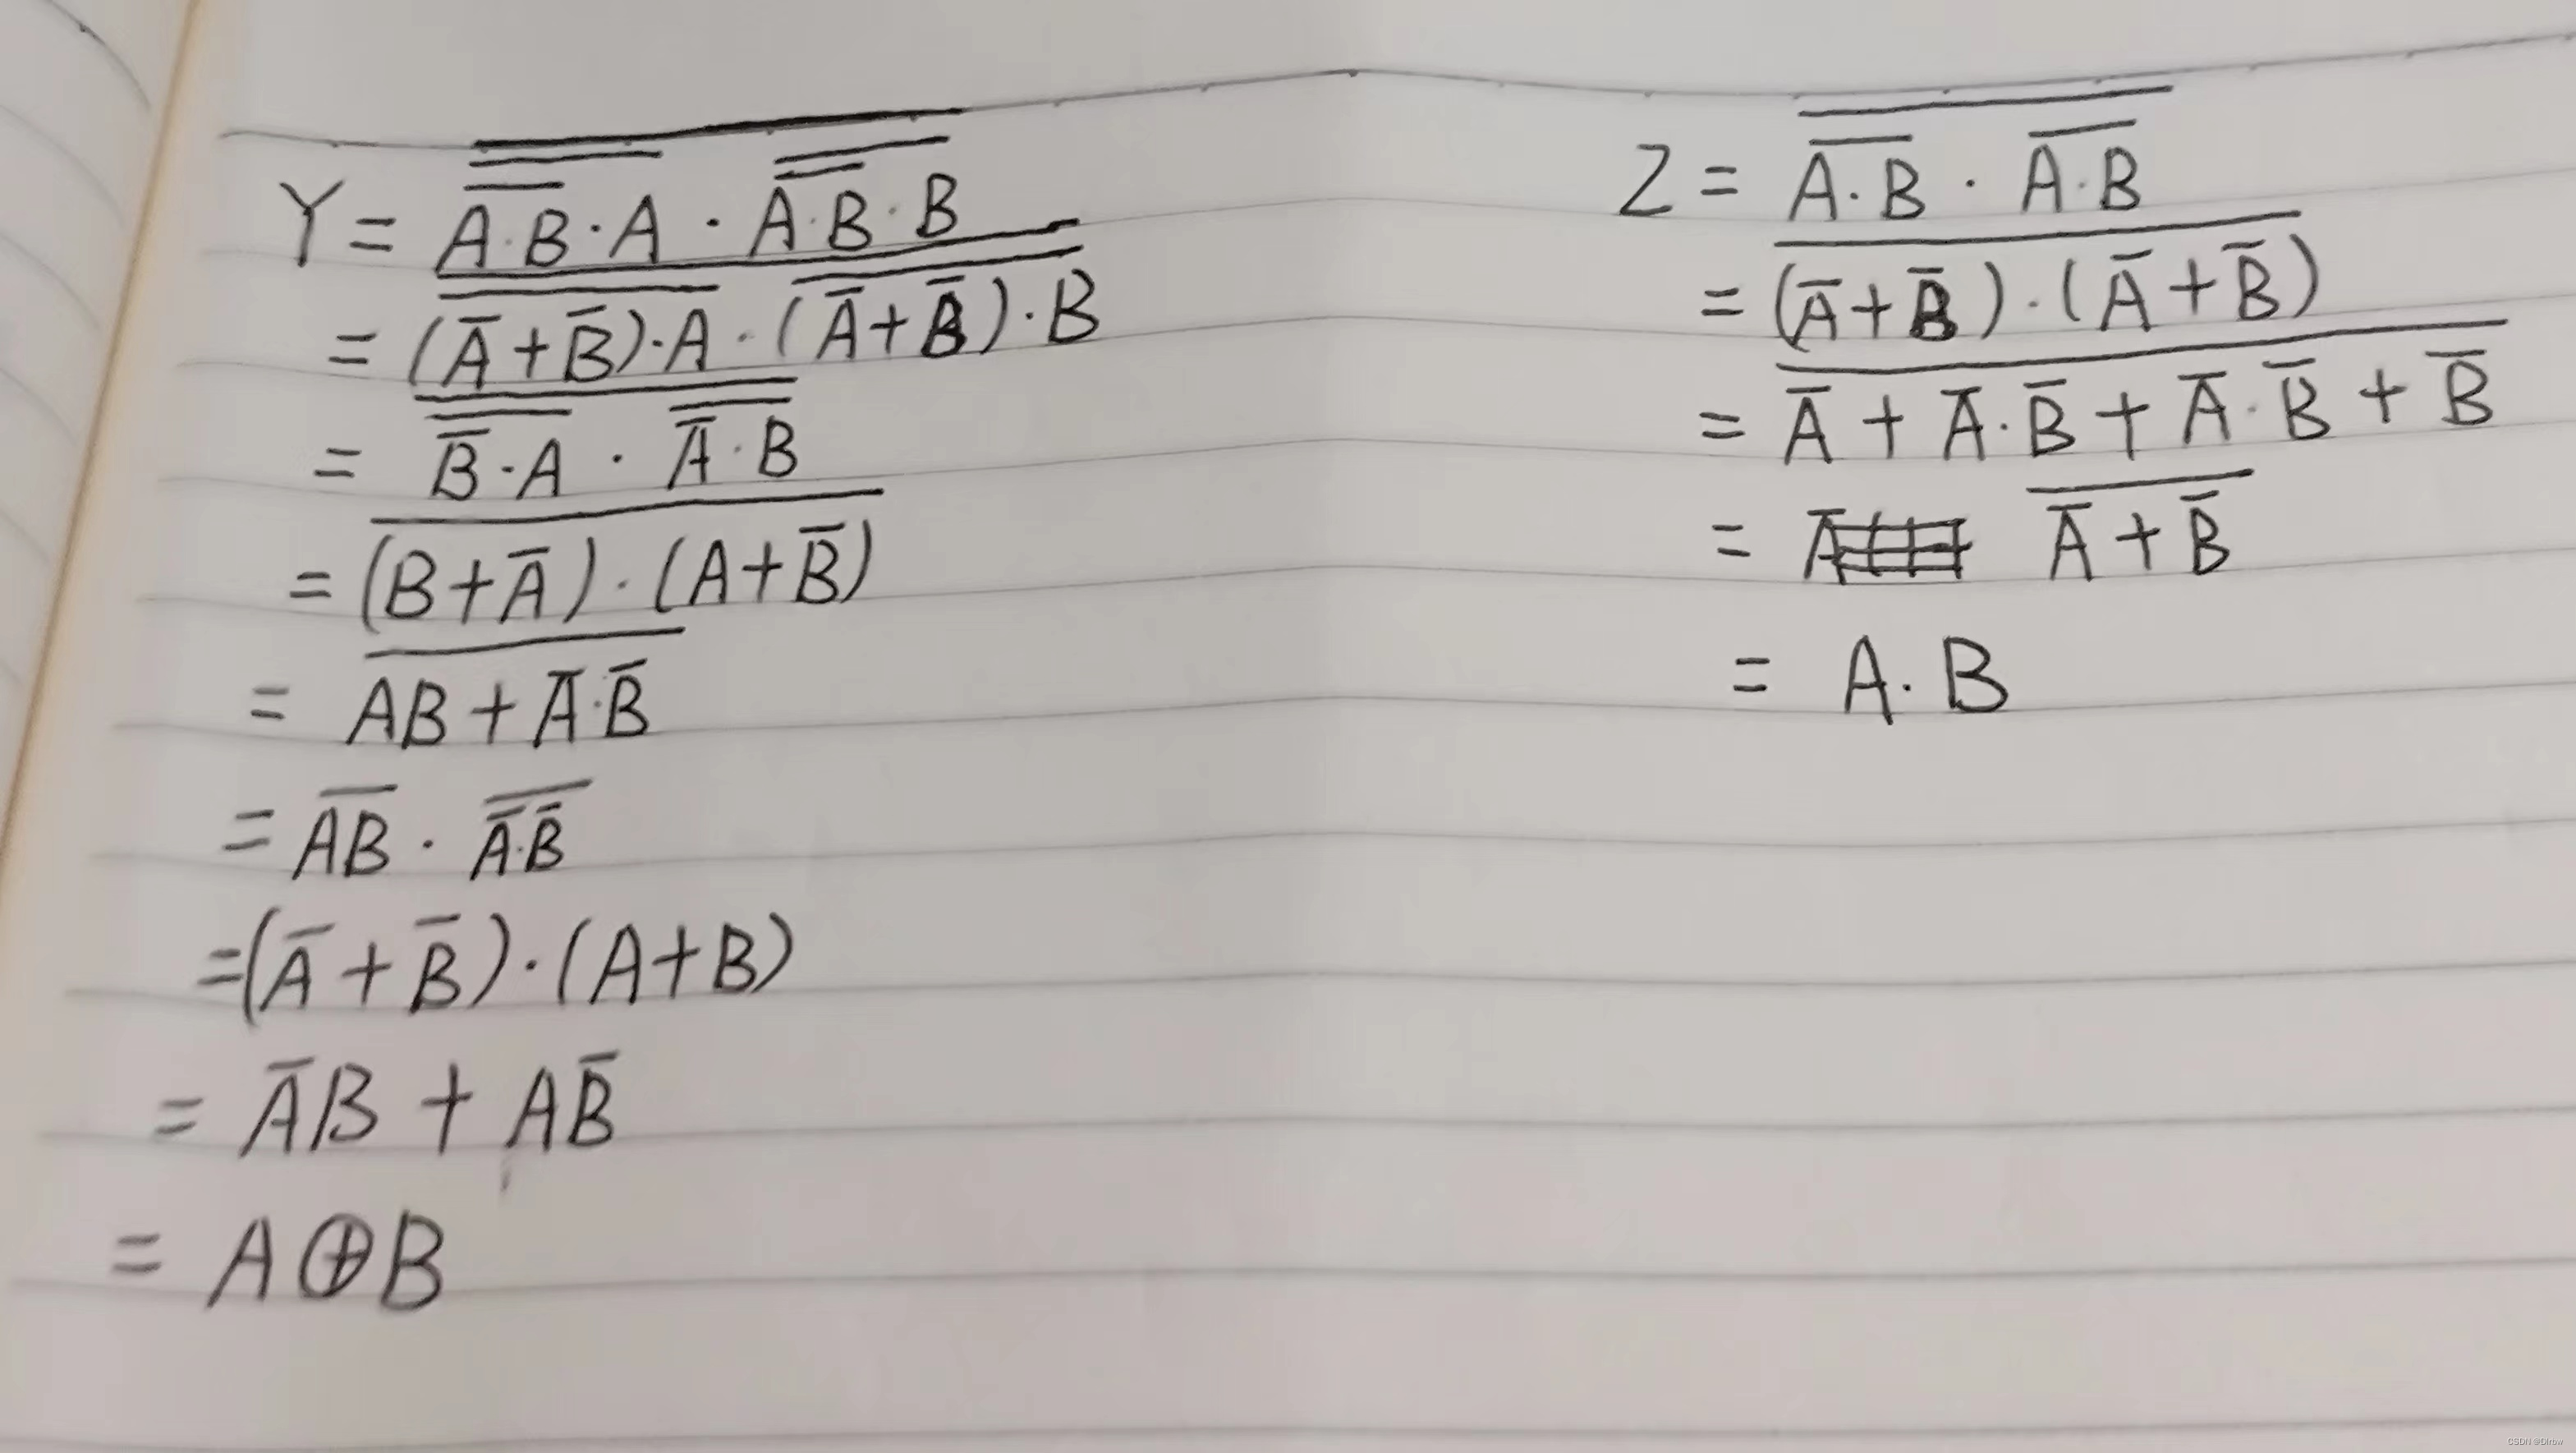 Y = \overline{\overline{\overline{A·B}·A} · \overline{\overline{A·B}·B}}
= \overline{\overline{(\overline{A}+\overline{B})·A} · \overline{(\overline{A}+\overline{B})·B}}
= \overline{\overline{\overline{B}·A} · \overline{\overline{A}·B}}
= \overline{(B+\overline{A})·(A+\overline{B})}
= \overline{AB+\overline{A}·\overline{B}}
= \overline{AB} · \overline{\overline{A}·\overline{B}}
=(\overline{A}+\overline{B})·(A+B)
= \overline{A}B + A\overline{B}
= A⊕B
Z = \overline{\overline{A·B} · \overline{A·B}}
= \overline{(\overline{A}+\overline{B})·(\overline{A}+\overline{B})}
= \overline{\overline{A}+\overline{A}·\overline{B}+\overline{A}·\overline{B}+\overline{B}}
= \overline{\overline{A}+\overline{B}}
= A·B
CSDN @Dirbw